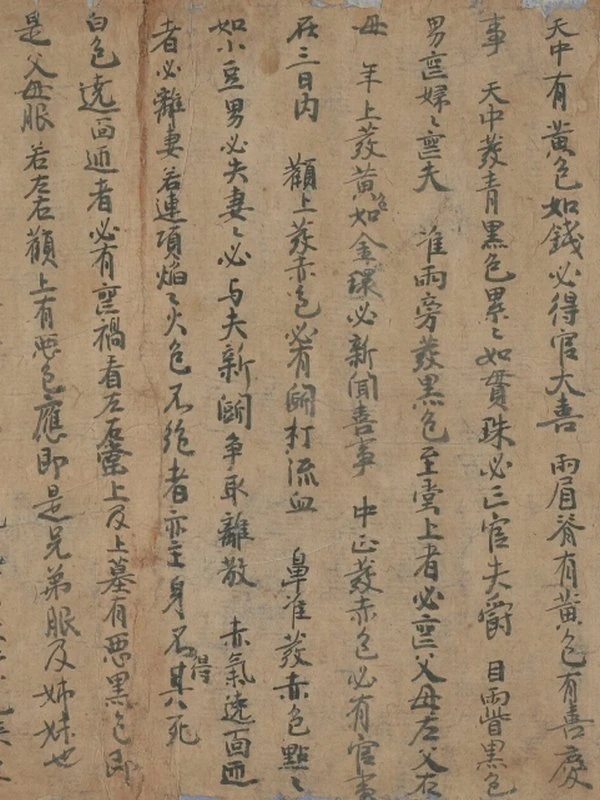 天中有黃色如錢必得官大喜 兩眉脊有黃色有善慶
事 天中發青黑色累〻如貫珠必亡官失爵 目兩眥黑色
男喪婦〻喪夫 准兩旁發黑色至堂上者必喪父母左父右
母 年上發黃色如金環必新聞喜事 中正發赤色必有官事
在三日內 顴上發赤色必有鬪打流血 鼻准發赤色點〻
如小豆男必失妻〻必与夫新鬪爭取離散 赤氣遶面迊
者必離妻若連項焰〻火色不絕者亦主身不得其死
白色遶面迊者必有喪禍看左右堂上及上墓有惡黑色即
是父母服若左右顴上有惡色應即是兄弟服及姊妹也